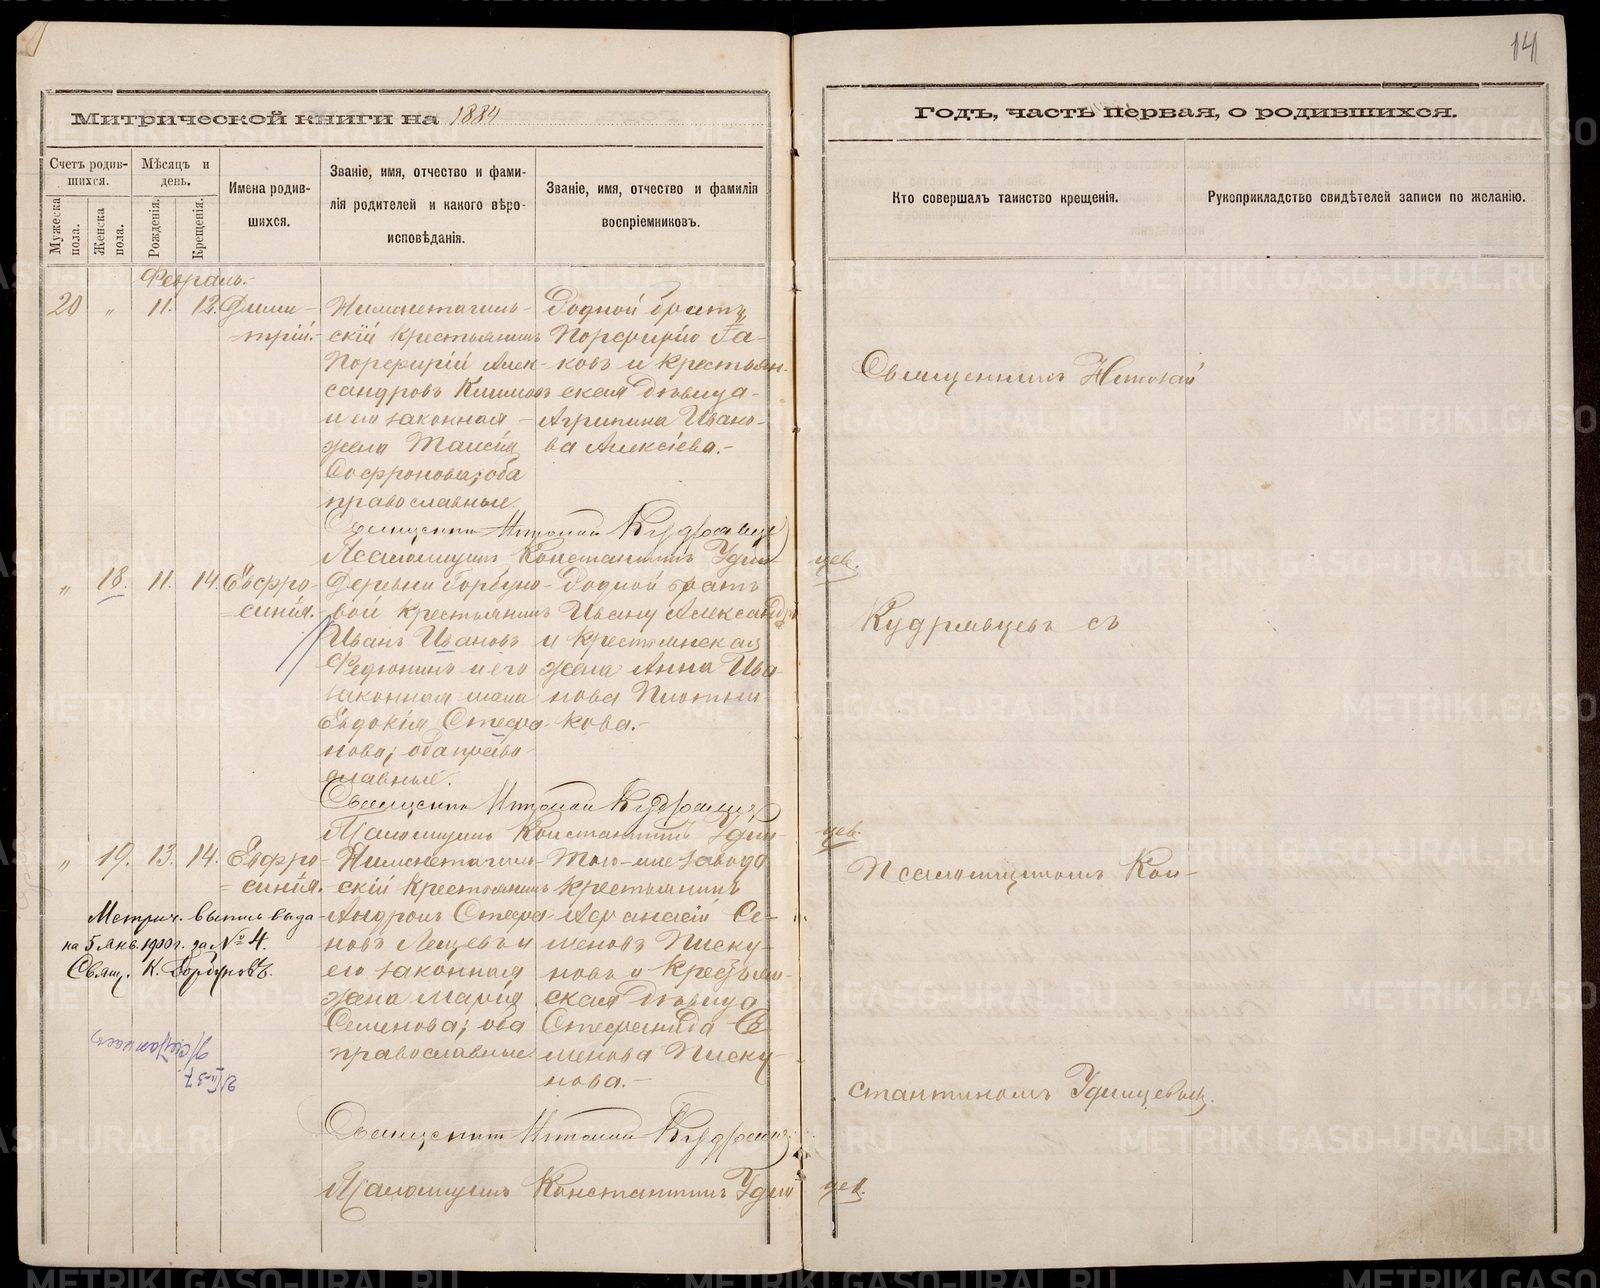 14
Митрической книги на 1884
Годъ, часть первая, о родившихся.
Счетъ родив-
шихся.
Мѣсяцъ и
день.
Мужеска
пола.
Женска
пола.
Рожденія.
Крещенія.
Имена родив-
шихся.
Званіе, имя, отчество и фами-
лія родителей и какого вѣро-
исповѣданія.
Званіе, имя, отчество и фамилія
воспріемниковъ.
Кто совершалъ таинство крещенія.
Рукоприкладство свидѣтелей записи по желанію.
Февраль.
20 " 11. 12. Дими-
трій.
Нижнетагиль-
скій крестьянинъ
Порфирій Алек-
сандровъ Климовъ
и его законная
жена Таисія
Софронова; оба
православные.
Родной братъ
Порфирію
ковъ и крестьян-
ская дѣвица
Агрипина Ивано-
ва Алексіева.-
Священникъ Кудрявцевъ
Псаломщикъ Константинъ Удин
цев.
" 18. 11. 14. Евфро-
синія.
Деревни Горбуно-
вой крестьянинъ
Иванъ Ивановъ
Федюнинъ и его
законная жена
Евдокія Стефа-
нова; оба право-
славные.
Родной братъ
Ивану Александръ
и крестьянская
жена Анна Ива-
нова Плотни-
кова.-
Священникъ Кудрявцевъ
Псаломщикъ Константинъ Удин-
цев.
" 19. 13. 14. Евфро-
синія.
Нижнетагиль-
скій крестьянинъ
Андронъ Стефа-
новъ Лещевъ и
его законная
жена Марія
Семенова; оба
православные.
Того-же завода
крестьянинъ
Афанасій Се-
меновъ Писку-
новъ и крестьян-
ская дѣвица
Стефанида Се-
менова Писку-
нова.-
Метрич. выпись выда-
на 5 Янв. 1900 г. за № 4.
Свящ. К. Горбуновъ.
Священникъ Кудрявцевъ
Псаломщикъ Константинъ Удин
цев.
Священникъ Николай
Кудрявцевъ съ
Псаломщикомъ Кон-
стантиномъ Удинцевымъ.
METRIKI.GASO-URAL.RU